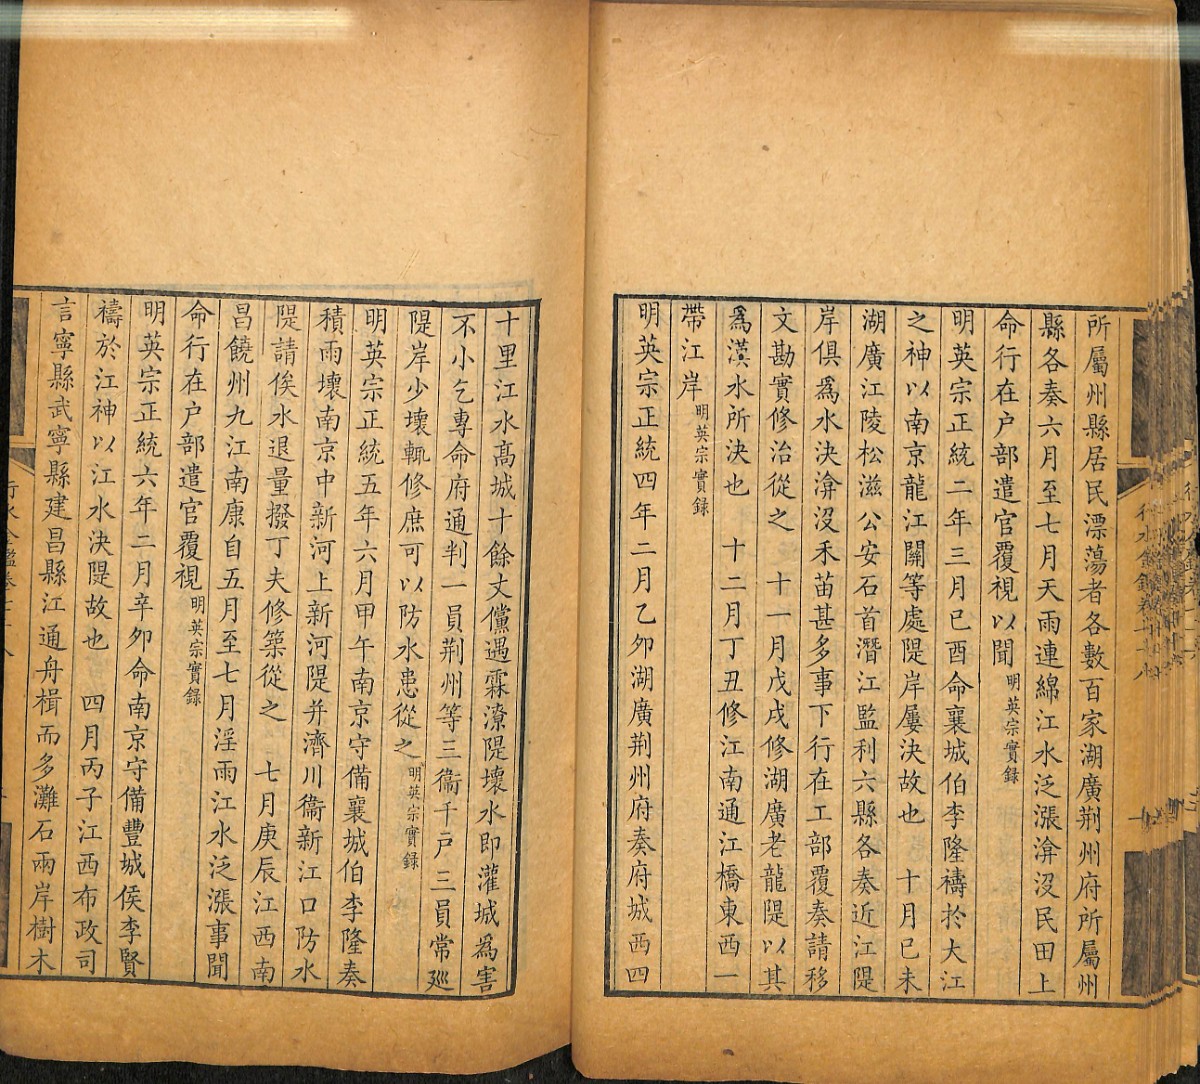 所屬州縣居民漂蕩者各數百家湖廣荆州府所屬州
縣各奏六月至七月天雨連綿江水泛漲渰沒民田上
命行在户部遣官覆視以聞明英宗實録
明英宗正統二年三月已酉命襄城伯李隆禱於大江
之神以南京龍江關等處隄岸屢決故也　十月已未
湖廣江陵松滋公安石首潛江監利六縣各奏近江隄
岸俱爲水決渰沒禾苗甚多事下行在工部覆奏請移
文勘實修治從之　十一月戊戌修湖廣老龍隄以其
爲漢水所決也　十二月丁丑修江南通江橋東西一
帶江岸明英宗實録
明英宗正統四年二月乙夘湖廣荆州府奏府城西四
十里江水髙城十餘丈儻遇霖潦隄壞水即灌城爲害
不小乞專命府通判一員荆州等三衞千户三員常廵
隄岸少壞輒修庶可以防水患從之明英宗實録
明英宗正統五年六月甲午南京守備襄城伯李隆奏
積雨壞南京中新河上新河隄并濟川衞新江口防水
隄請俟水退量撥丁夫修築從之　七月庚辰江西南
昌饒州九江南康自五月至七月淫雨江水泛漲事聞
命行在户部遣官覆視明英宗實録
明英宗正統六年二月辛夘命南京守備豐城侯李賢
禱於江神以江水決隄故也　四月丙子江西布政司
言寧縣武寧縣建昌縣江通舟楫而多灘石兩岸樹木